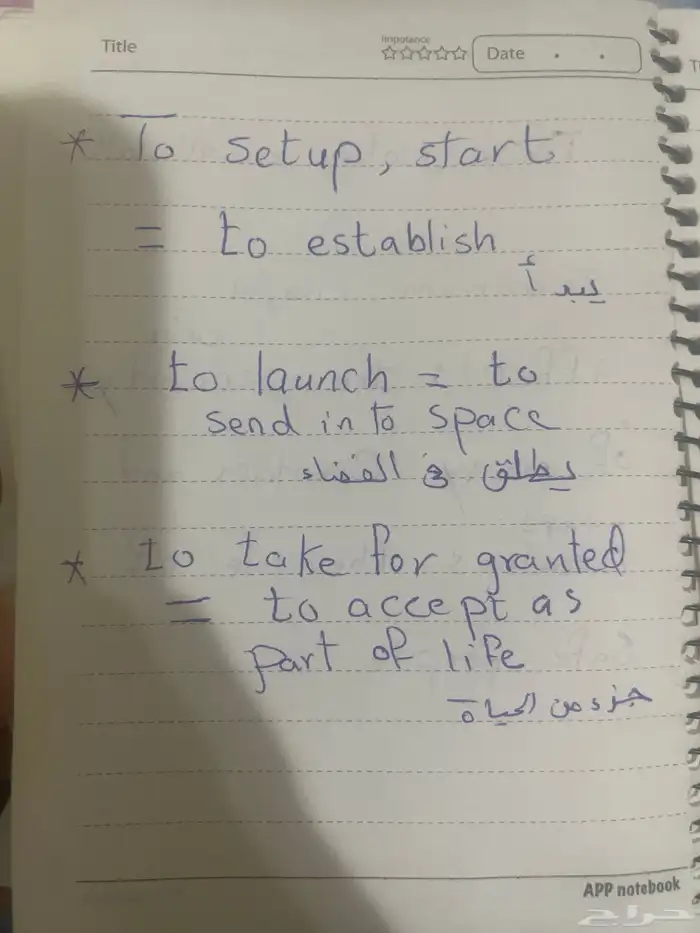 Title
Impotance
Date . .
* To setup, start
= to establish
يبدأ
* to launch = to
send in to space
يطلق في الفضاء
* to take for granted
= to accept as
part of life
جزء من الحياة
APP notebook
حراج